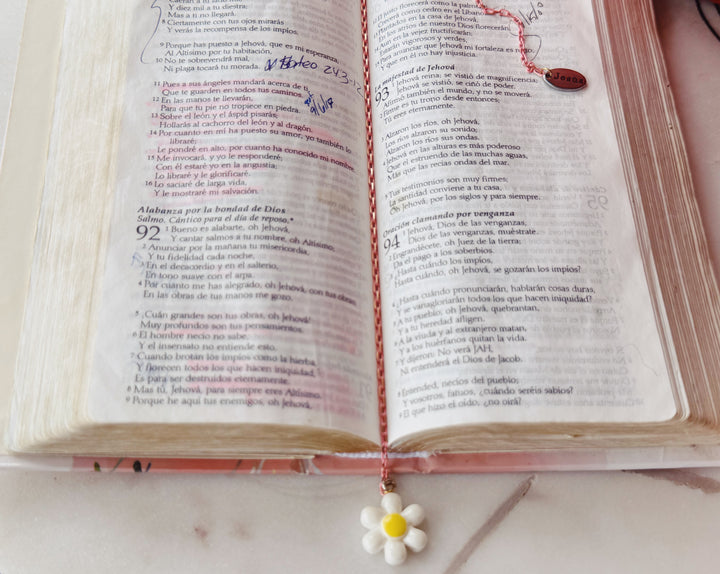 Y diez mil a tu diestra;
Mas a ti no llegará.
8 Ciertamente con tus ojos mirarás
Y verás la recompensa de los impíos.
9 Porque has puesto a Jehová, que es mi esperanza,
Al Altísimo por tu habitación,
10 No te sobrevendrá mal,
Ni plaga tocará tu morada.
Mateo 24:3-12
11 Pues a sus ángeles mandará acerca de ti,
Que te guarden en todos tus caminos.
12 En las manos te llevarán,
Para que tu pie no tropiece en piedra.
13 Sobre el león y el áspid pisarás;
Hollarás al cachorro del león y al dragón.
14 Por cuanto en mí ha puesto su amor, yo también lo
libraré;
Le pondré en alto, por cuanto ha conocido mi nombre.
15 Me invocará, y yo le responderé;
Con él estaré yo en la angustia;
Lo libraré y le glorificaré.
16 Lo saciaré de larga vida,
Y le mostraré mi salvación.
Alabanza por la bondad de Dios
Salmo. Cántico para el día de reposo.*
92 1 Bueno es alabarte, oh Jehová,
Y cantar salmos a tu nombre, oh Altísimo;
2 Anunciar por la mañana tu misericordia,
Y tu fidelidad cada noche,
3 En el decacordio y en el salterio,
En tono suave con el arpa.
4 Por cuanto me has alegrado, oh Jehová, con tus obras;
En las obras de tus manos me gozo.
5 ¡Cuán grandes son tus obras, oh Jehová!
Muy profundos son tus pensamientos.
6 El hombre necio no sabe,
Y el insensato no entiende esto.
7 Cuando brotan los impíos como la hierba,
Y florecen todos los que hacen iniquidad,
Es para ser destruidos eternamente.
8 Mas tú, Jehová, para siempre eres Altísimo.
9 Porque he aquí tus enemigos, oh Jehová,
12 El justo florecerá como la palmera;
Crecerá como cedro en el Líbano.
Plantados en la casa de Jehová,
En los atrios de nuestro Dios florecerán.
14 Aun en la vejez fructificarán;
Estarán vigorosos y verdes,
15 Para anunciar que Jehová mi fortaleza es recto,
Y que en él no hay injusticia.
Josué
La majestad de Jehová
93 1 Jehová reina; se vistió de magnificencia;
Jehová se vistió, se ciñó de poder.
Afirmó también el mundo, y no se moverá.
2 Firme es tu trono desde entonces;
Tú eres eternamente.
3 Alzaron los ríos, oh Jehová,
Los ríos alzaron su sonido;
Alzaron los ríos sus ondas.
4 Jehová en las alturas es más poderoso
Que el estruendo de las muchas aguas,
Más que las recias ondas del mar.
5 Tus testimonios son muy firmes;
La santidad conviene a tu casa,
Oh Jehová, por los siglos y para siempre.
Oración clamando por venganza
94 1 Jehová, Dios de las venganzas,
Dios de las venganzas, muéstrate.
2 Engrandécete, oh Juez de la tierra;
Da el pago a los soberbios.
3 ¿Hasta cuándo los impíos,
Hasta cuándo, oh Jehová, se gozarán los impíos?
4 ¿Hasta cuándo pronunciarán, hablarán cosas duras,
Y se vanagloriarán todos los que hacen iniquidad?
5 A tu pueblo, oh Jehová, quebrantan,
Y a tu heredad afligen.
6 A la viuda y al extranjero matan,
Y a los huérfanos quitan la vida.
7 Y dijeron: No verá JAH,
Ni entenderá el Dios de Jacob.
8 Entended, necios del pueblo;
Y vosotros, fatuos, ¿cuándo seréis sabios?
9 El que hizo el oído, ¿no oirá?